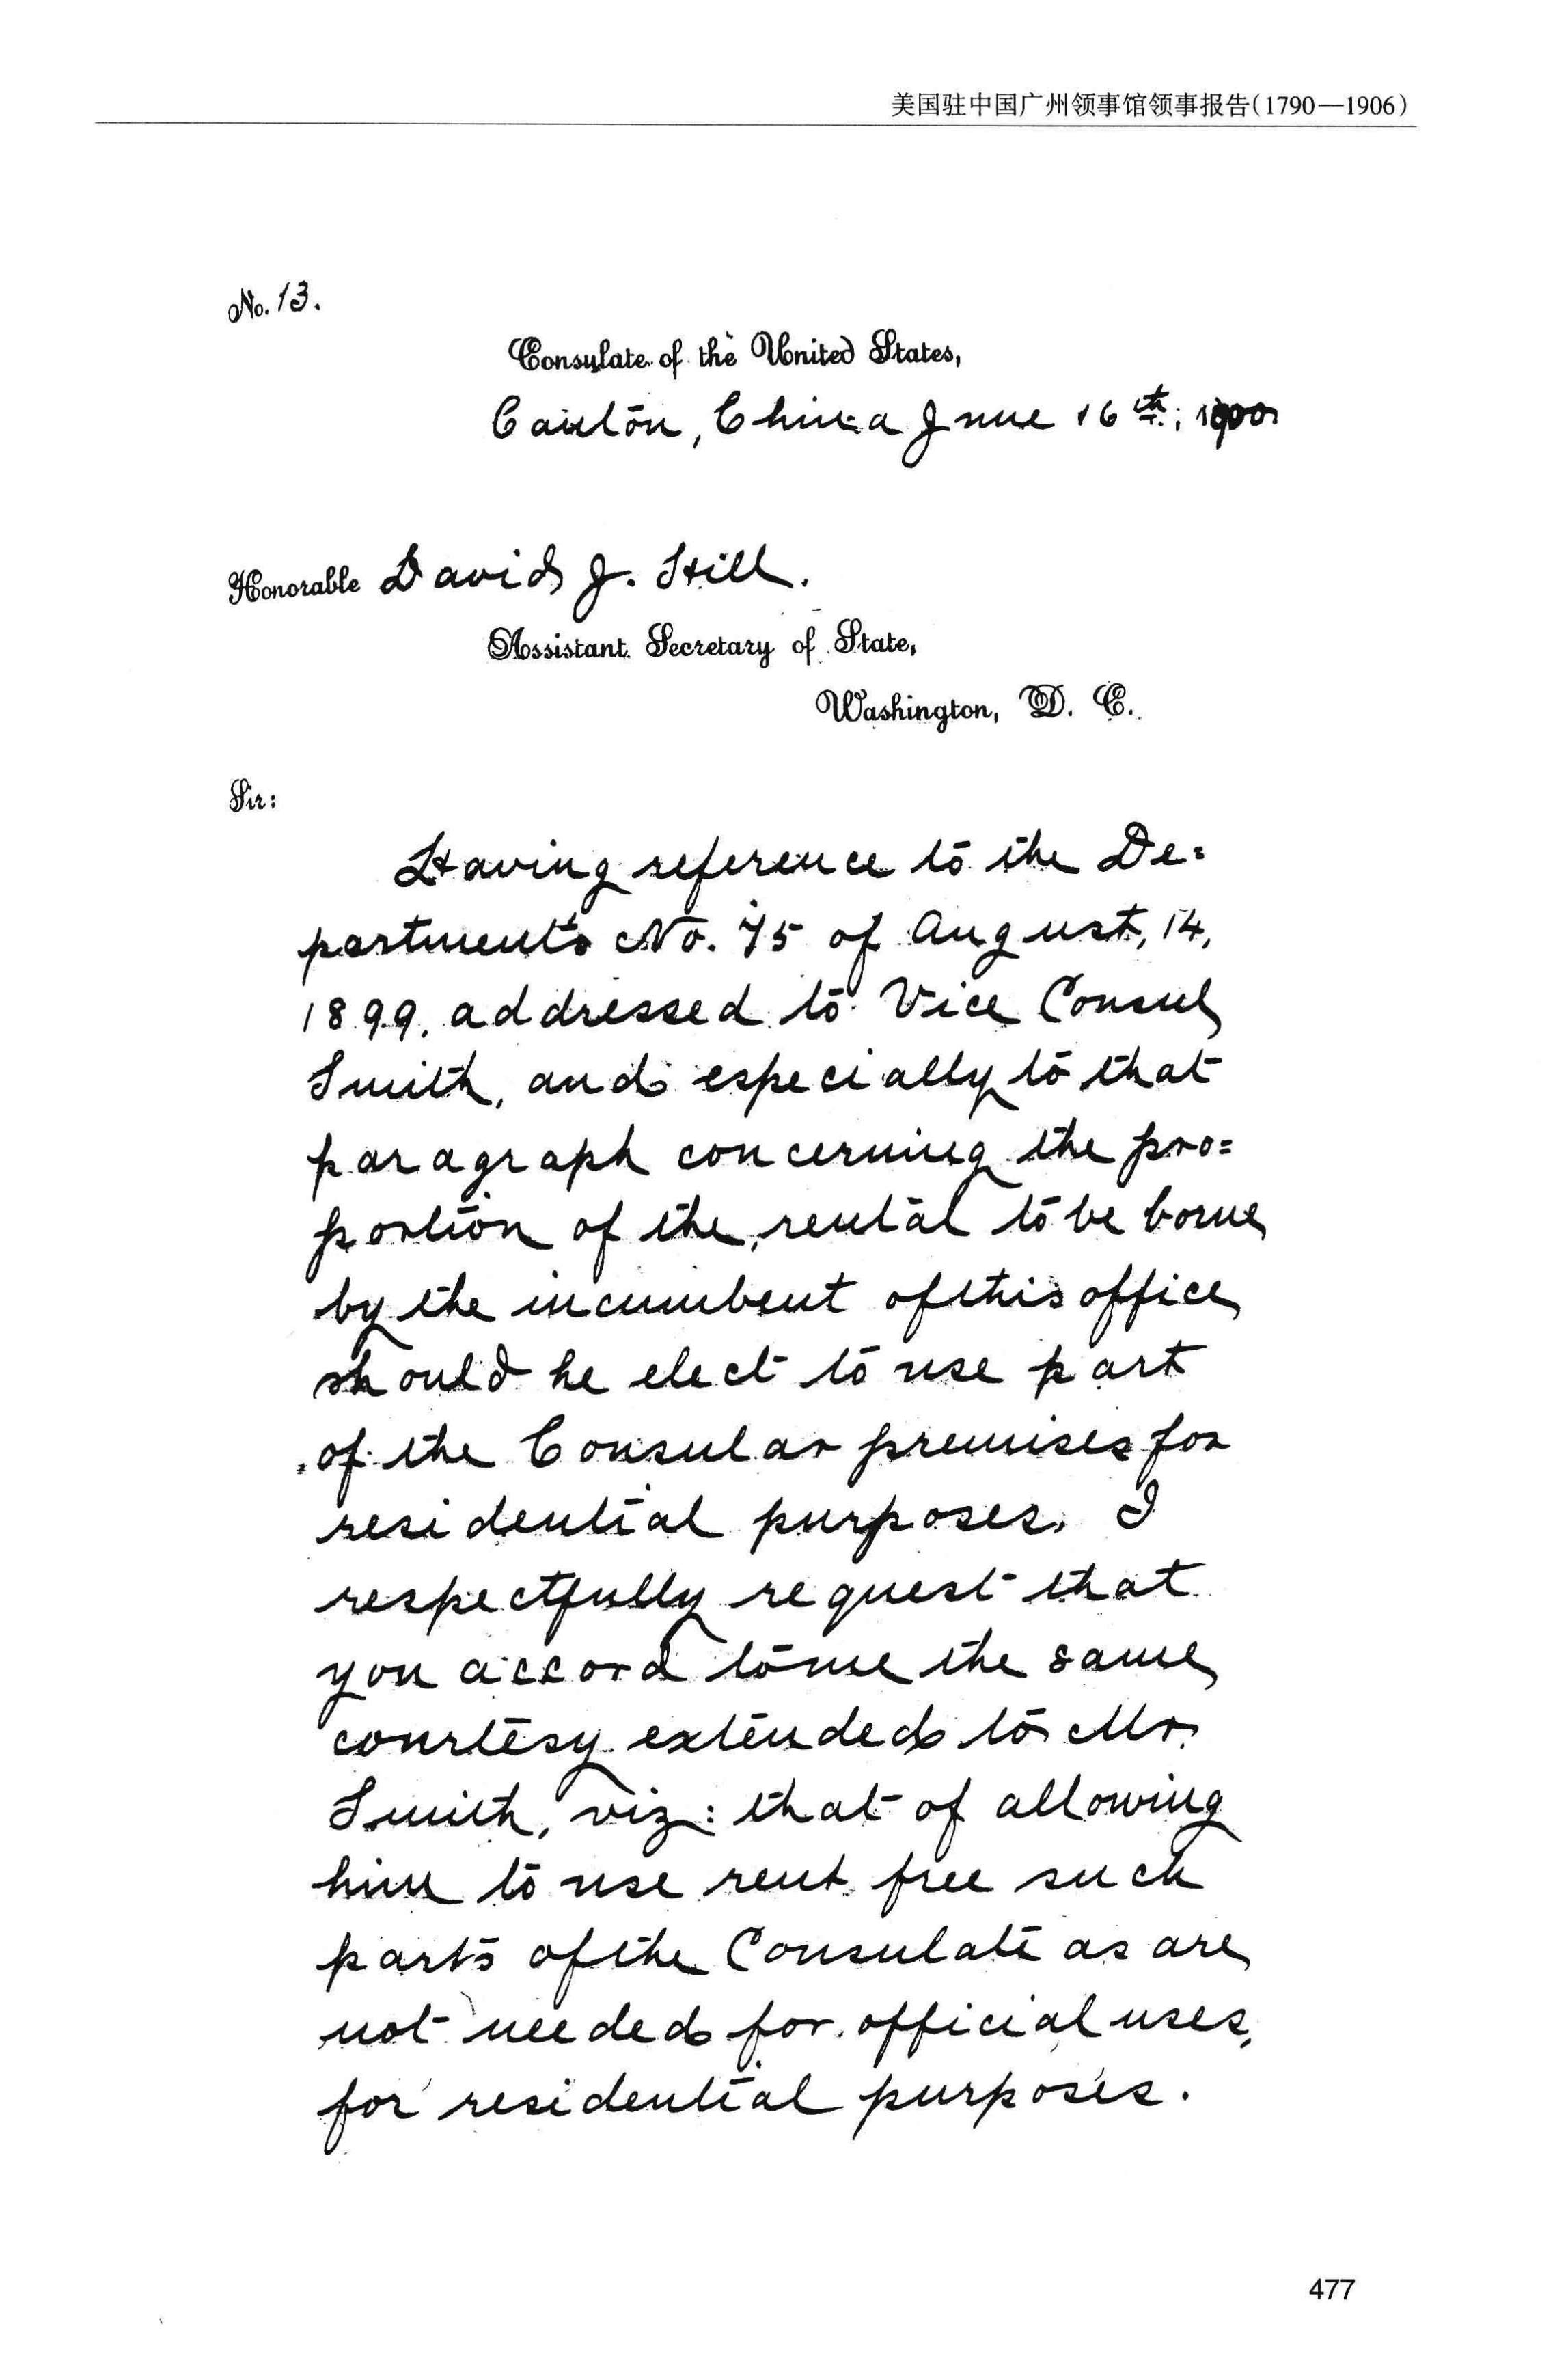 美国驻中国广州领事馆领事报告(1790—1906)
No. 13.
Consulate of the United States,
Canton, China June 16th, 1900.
Honorable David J. Hill.
Assistant Secretary of State,
Washington, D. C.
Sir:
Having reference to the De=
partment's No. 75 of August, 14,
1899, addressed to Vice Consul
Smith, and especially to that
paragraph concerning the pro=
portion of the rental to be borne
by the incumbent of this office
should he elect to use part
of the Consular premises for
residential purposes, I
respectfully request that
you accord to me the same
courtesy extended to Mr.
Smith, viz: that of allowing
him to use rent free such
parts of the Consulate as are
not needed for official uses,
for residential purposes.
477